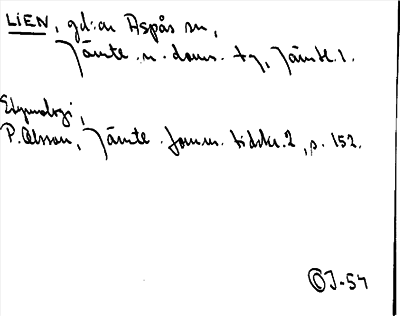 LIEN, gd:ar Aspås sn,
Jämte. n. doms. tg, Jämtl. l.
Etymologi,
P. Olsson, Jämte. fornm. tidskr. 2, s. 152.
OJ-54